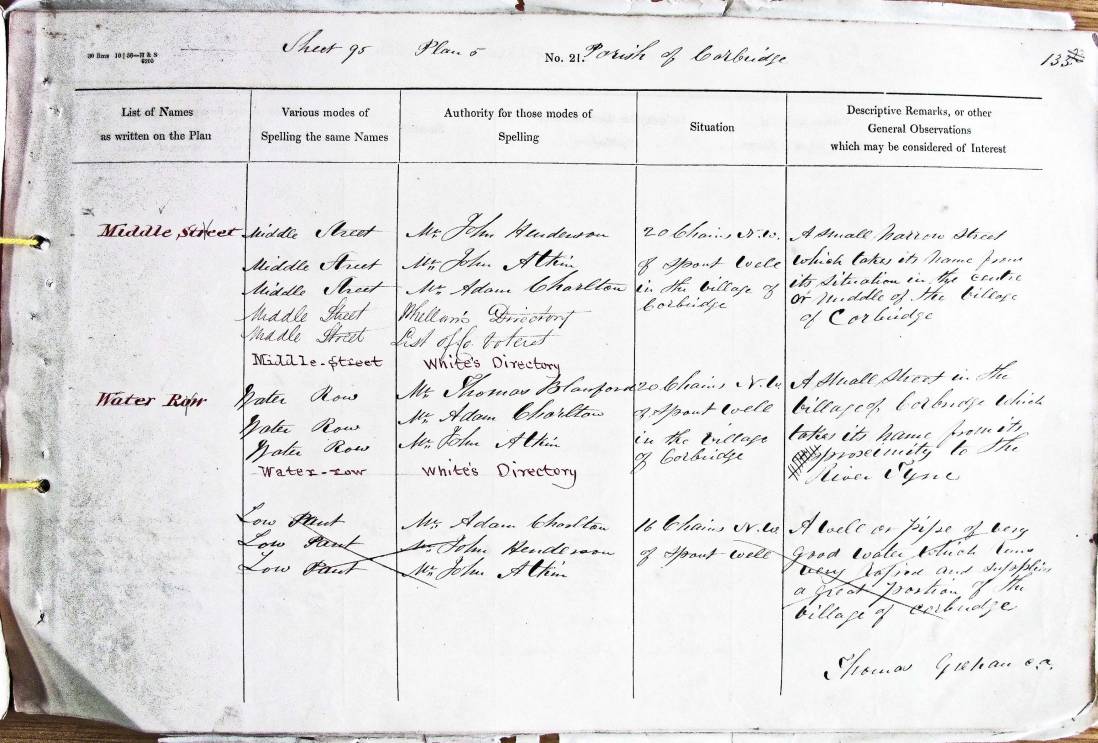 Sheet 95 Plan 5 No. 21. Parish of Corbridge 133
List of Names
as written on the Plan
Various modes of
Spelling the same Names
Authority for those modes of
Spelling
Situation
Descriptive Remarks, or other
General Observations
which may be considered of Interest
Middle Street
Middle Street
Middle Street
Middle Street
Middle Street
Middle Street
Middle-Street
Mr. John Henderson
Mr. John Atkin
Mr. Adam Charlton
Whellan's Directory
List of Co. Voters
White's Directory
20 Chains N.W.
of Spout Well
in the village of
Corbridge
A small narrow street
which takes its name from
its situation in the centre
or middle of the village
of Corbridge
Water Row
Water Row
Water Row
Water Row
Water-row
Mr. Thomas Blanford
Mr. Adam Charlton
Mr. John Atkin
White's Directory
20 Chains N.W.
of Spout Well
in the village
of Corbridge
A small street in the
village of Corbridge which
takes its name from its
proximity to the
River Tyne
Low Pant
Low Pant
Low Pant
Mr. Adam Charlton
Mr. John Henderson
Mr. John Atkin
16 Chains N.W.
of Spout Well
A well or pipe of very
good water which runs
very rapid and supplies
a great portion of the
village of Corbridge
Thomas c.a.